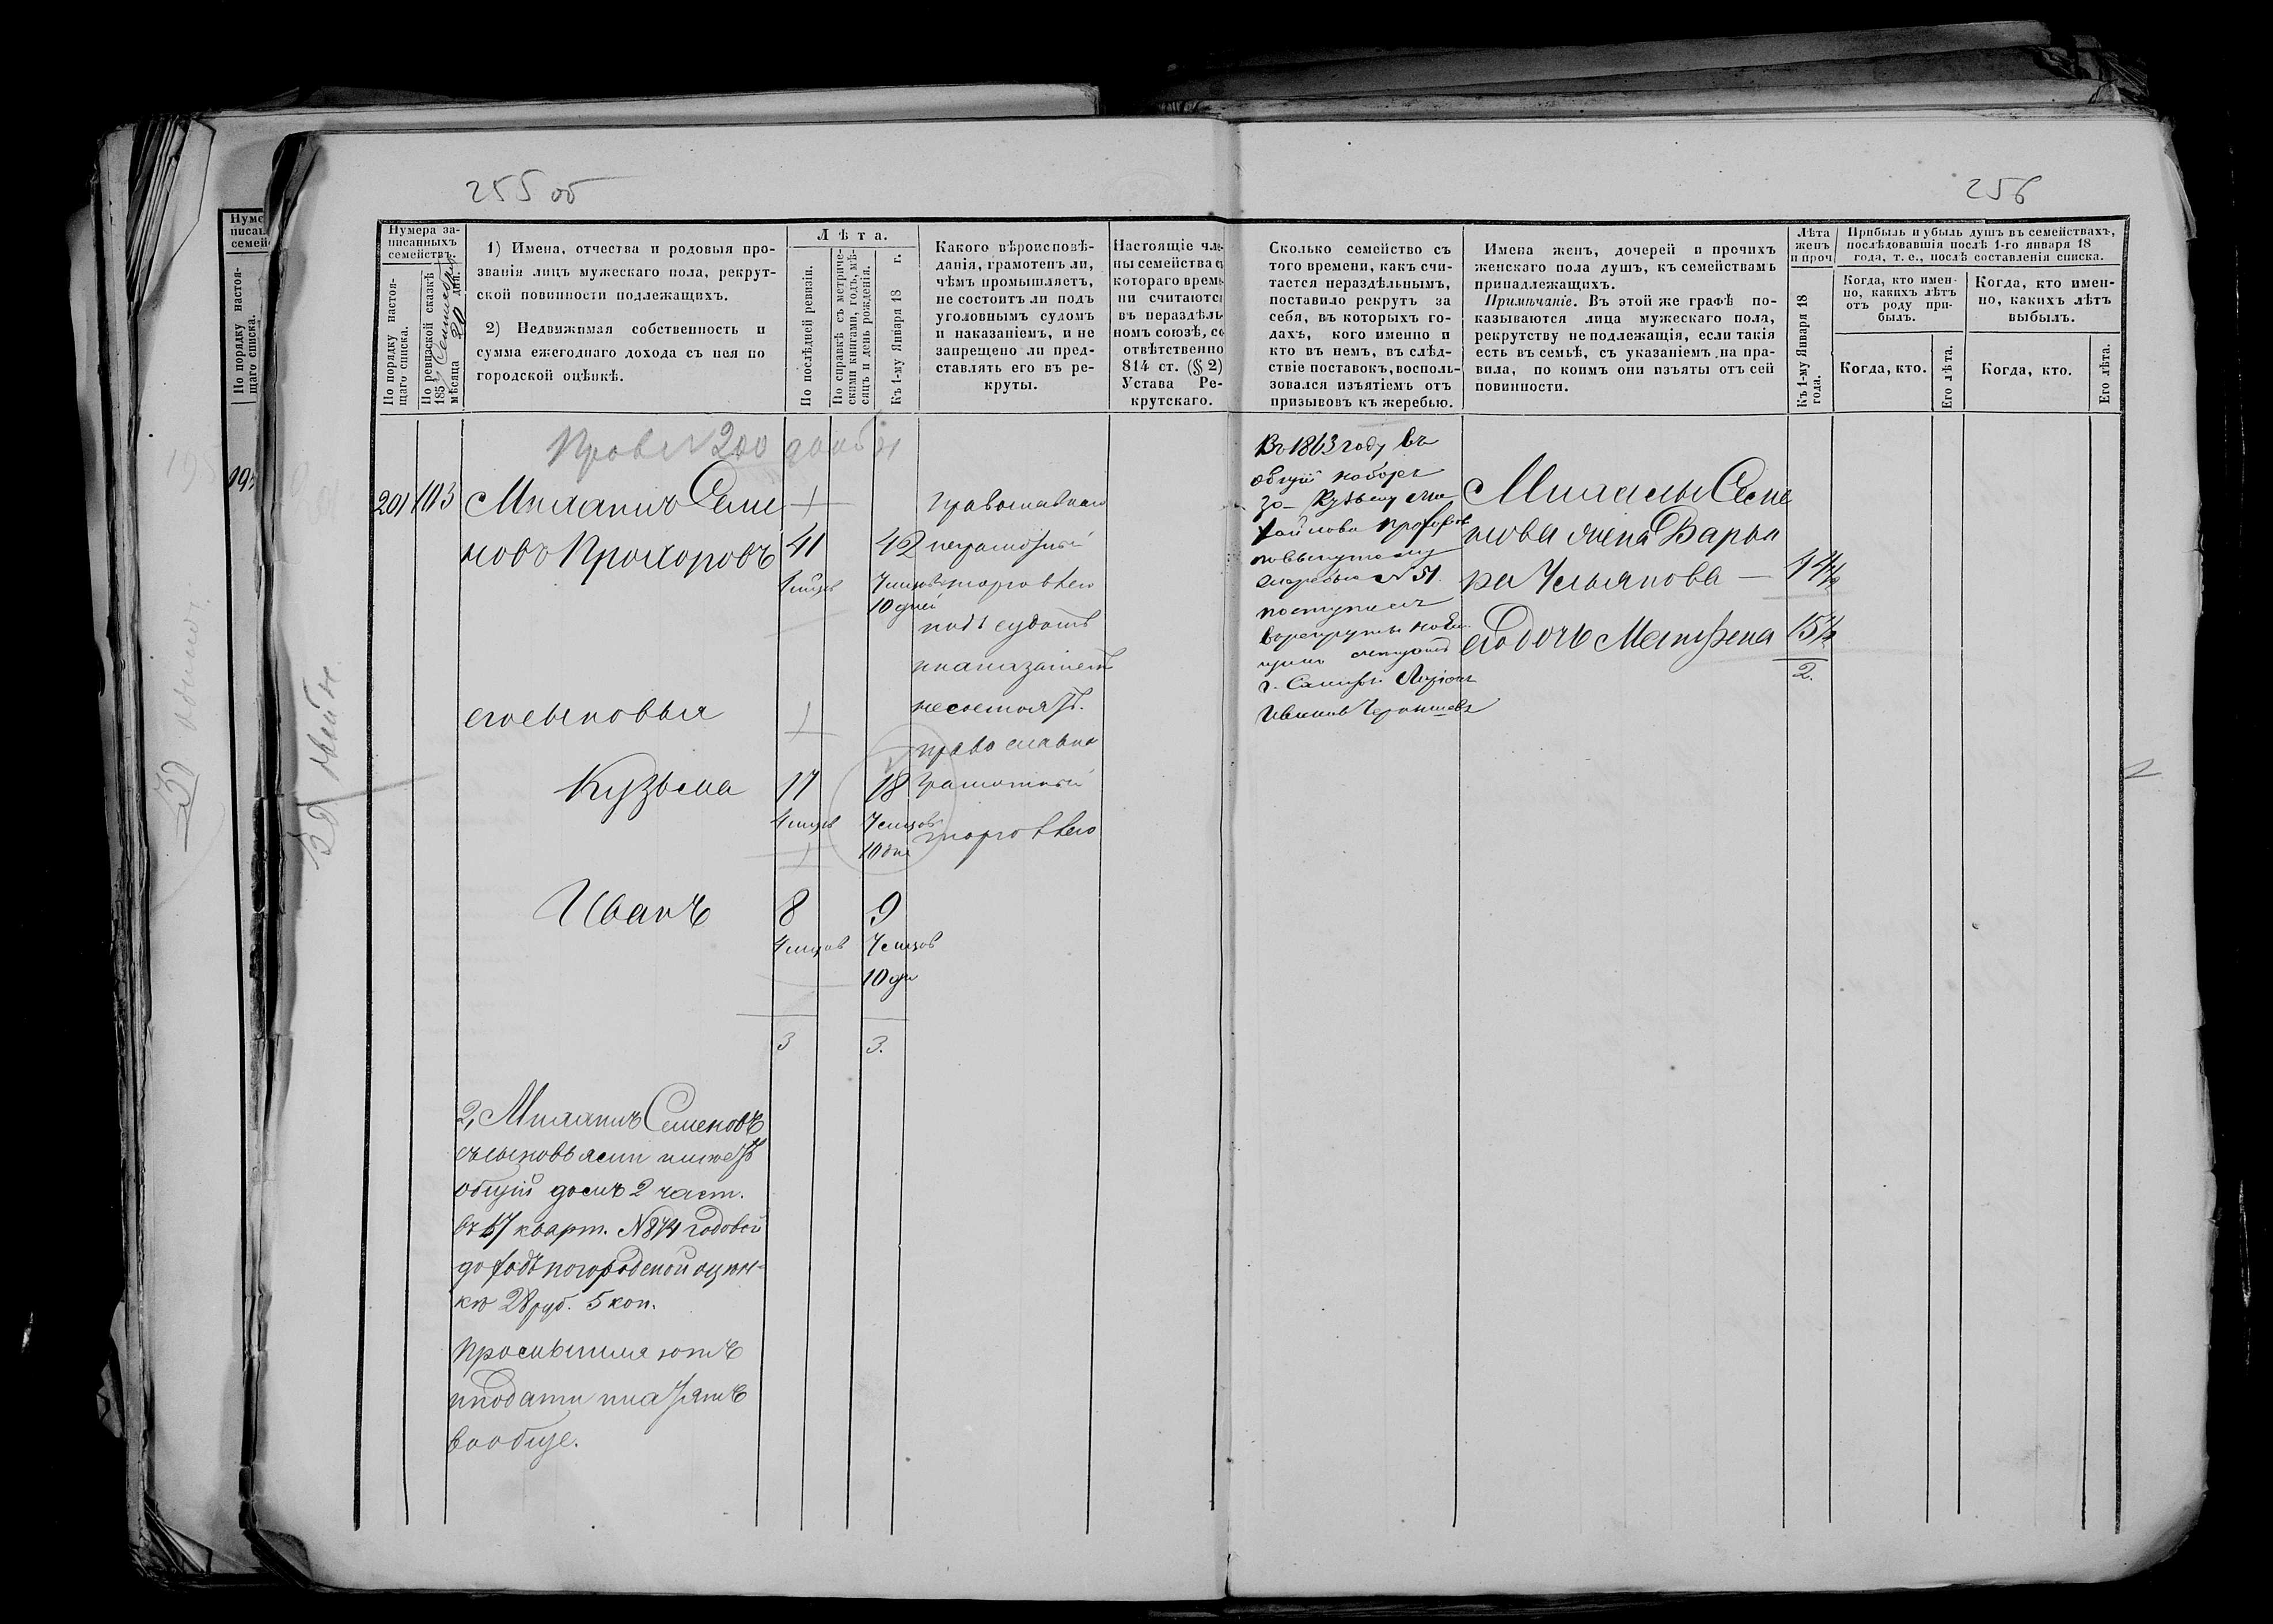 255 об
256
Нумера за-
писанныхъ
семействъ.
По порядку настоя-
щаго списка.
По ревизской сказкѣ
185 Сентября
мѣсяца 20 дня.
1) Имена, отчества и родовыя про-
званія лицъ мужескаго пола, рекрут-
ской повинности подлежащихъ.
2) Недвижимая собственность и
сумма ежегоднаго дохода съ нея по
городской оцѣнкѣ.
Лѣта.
По послѣдней ревизіи.
По справкѣ съ метриче-
скими книгами, годъ, мѣ-
сяцъ и день рожденія.
Къ 1-му Января 18 г.
Какого вѣроисповѣ-
данія, грамотенъ ли,
чѣмъ промышляетъ,
не состоитъ ли подъ
уголовнымъ судомъ
и наказаніемъ, и не
запрещено ли пред-
ставлять его въ ре-
круты.
Настоящіе чле-
ны семейства съ
котораго време
ни считаются
въ нераздѣль
номъ союзѣ, со
отвѣтственно
814 ст. (§ 2)
Устава Ре-
крутскаго.
Сколько семейство съ
того времени, какъ счи-
тается нераздѣльнымъ,
поставило рекрутъ за
себя, въ которыхъ го-
дахъ, кого именно и
кто въ немъ, въ слѣд-
ствіе поставокъ, восполь-
зовался изъятіемъ отъ
призывовъ къ жеребью.
Имена женъ, дочерей и прочихъ
женскаго пола душъ, къ семействамъ
принадлежащихъ.
Примѣчаніе. Въ этой же графѣ по-
казываются лица мужескаго пола,
рекрутству не подлежащія, если такія
есть въ семьѣ, съ указаніемъ на пра-
вила, по коимъ они изъяты отъ сей
повинности.
Лѣта
женъ
и проч
Къ 1-му Января 18
года.
Прибыль и убыль душъ въ семействахъ,
послѣдовавшія послѣ 1-го января 18
года, т. е., послѣ составленія списка.
Когда, кто имен-
но, какихъ лѣтъ
отъ роду при-
былъ.
Когда, кто имен-
но, какихъ лѣтъ
выбылъ.
Когда, кто.
Его лѣта.
Когда, кто.
Его лѣта.
201 103 Михаилъ Семе
новъ Прохоровъ
41
4 мѣсяц
42
7 мѣсяц
10 дней
православнаго
неграмотный
торговлею
подъ судомъ
и наказаніемъ
несостоятъ.
его сыновья
Кузьма 17 18
4 мѣсяц 7 мѣсяцов
10 дне
православна
Грамотный
торговлею
Иванъ 8 9
4 мѣсяцов 7 мѣсяцов
10 дн
3 3.
2, Михаилъ Семеновъ
съ сыновьями имѣетъ
общій домъ 2 част.
въ 57 кварт. N 874 годовой
доходъ погородской оцѣн-
кѣ 28 руб. 5 коп.
и подати платятъ
вообще.
Въ 1863 году въ
общій наборъ
за Кузьму Ми
хайлова Прохоров
повынутому
жеребью N 51.
поступилъ
Михаилы Семе
нова жена Варва
ра Ульянова — 44½
его дочь Матрена 15½
2.